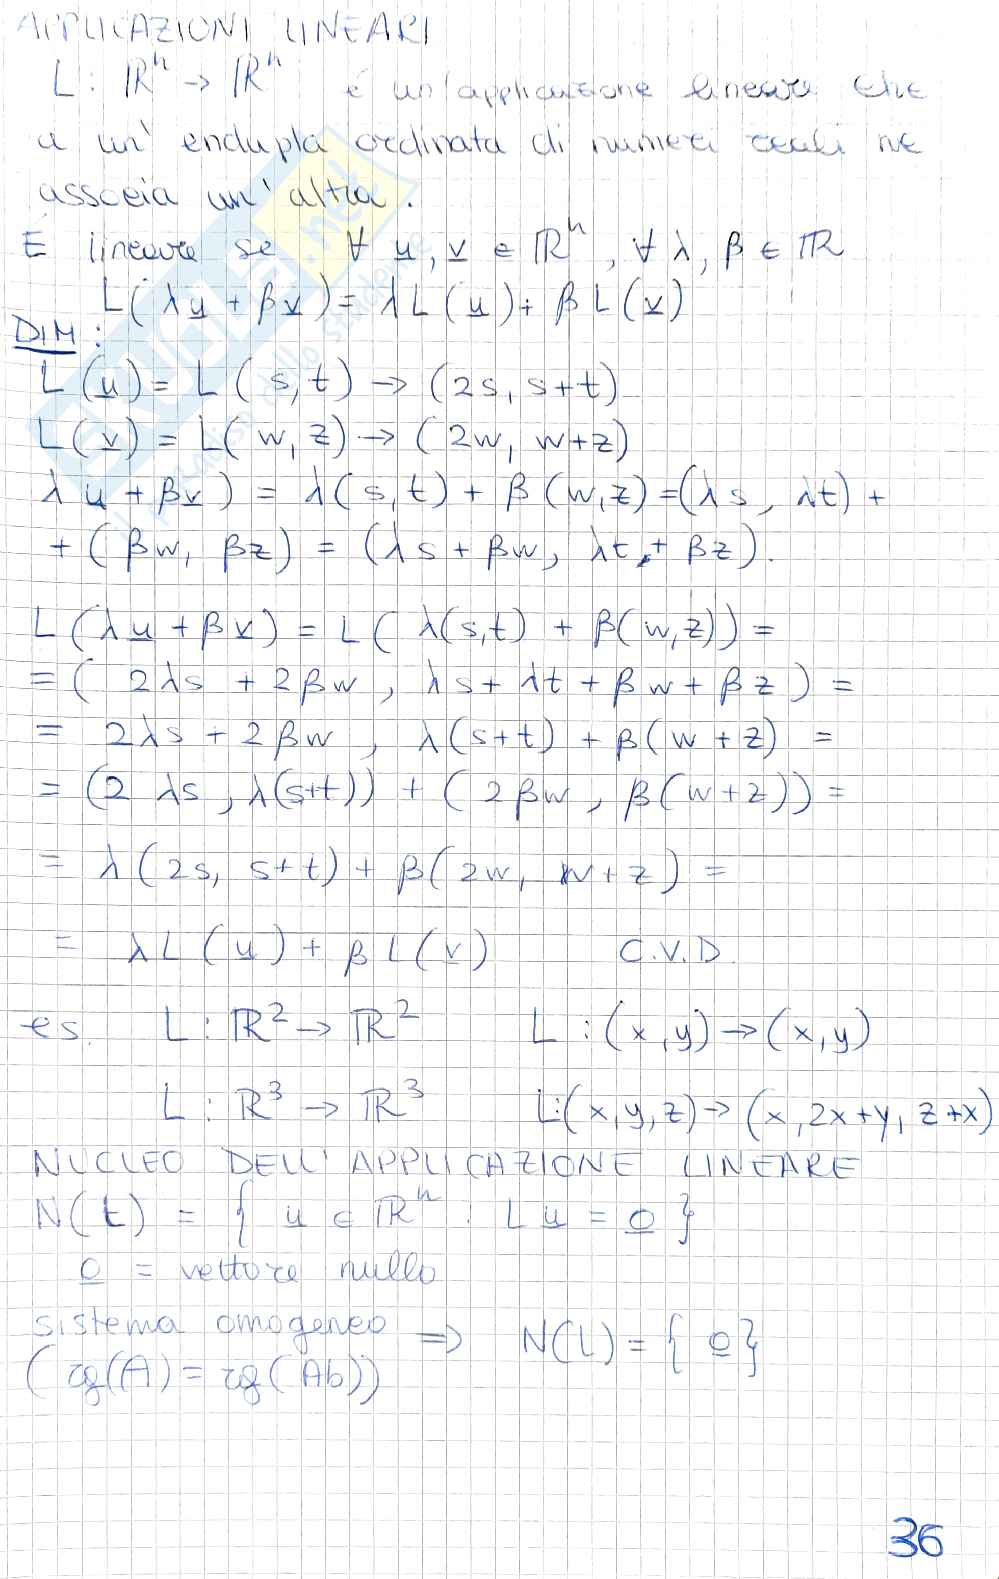 APPLICAZIONI LINEARI
L: ℝⁿ → ℝⁿ é un'applicazione lineare che
a un' endupla ordinata di numeri reali ne
associa un' altra.
É lineare se ∀ u̲, v̲ ∈ ℝⁿ, ∀ λ, β ∈ ℝ
L(λu̲ + βv̲) = λL(u̲) + βL(v̲)
DIM:
L(u̲) = L(s,t) → (2s, s+t)
L(v̲) = L(w,z) → (2w, w+z)
λu̲ + βv̲) = λ(s,t) + β(w,z) = (λs, λt) +
+ (βw, βz) = (λs + βw, λt + βz).
L(λu̲ + βv̲) = L( λ(s,t) + β(w,z)) =
= ( 2λs + 2βw , λs + λt + βw + βz ) =
= 2λs + 2βw , λ(s+t) + β(w+z) =
= (2 λs, λ(s+t)) + ( 2βw, β(w+z)) =
= λ(2s, s+t) + β(2w, w+z) =
= λL(u̲) + βL(v̲) C.V.D.
es. L: ℝ² → ℝ² L :(x,y) → (x,y)
L: ℝ³ → ℝ³ L:(x,y,z) → (x, 2x+y, z+x)
NUCLEO DELL' APPLICAZIONE LINEARE
N(t) = { u̲ ∈ ℝⁿ : Lu̲ = o̲ }
o̲ = vettore nullo
sistema omogeneo ⇒ N(L) = { o̲ }
(rg(A) = rg(Ab))
36
SKUOLA.net
il paradiso dello studente